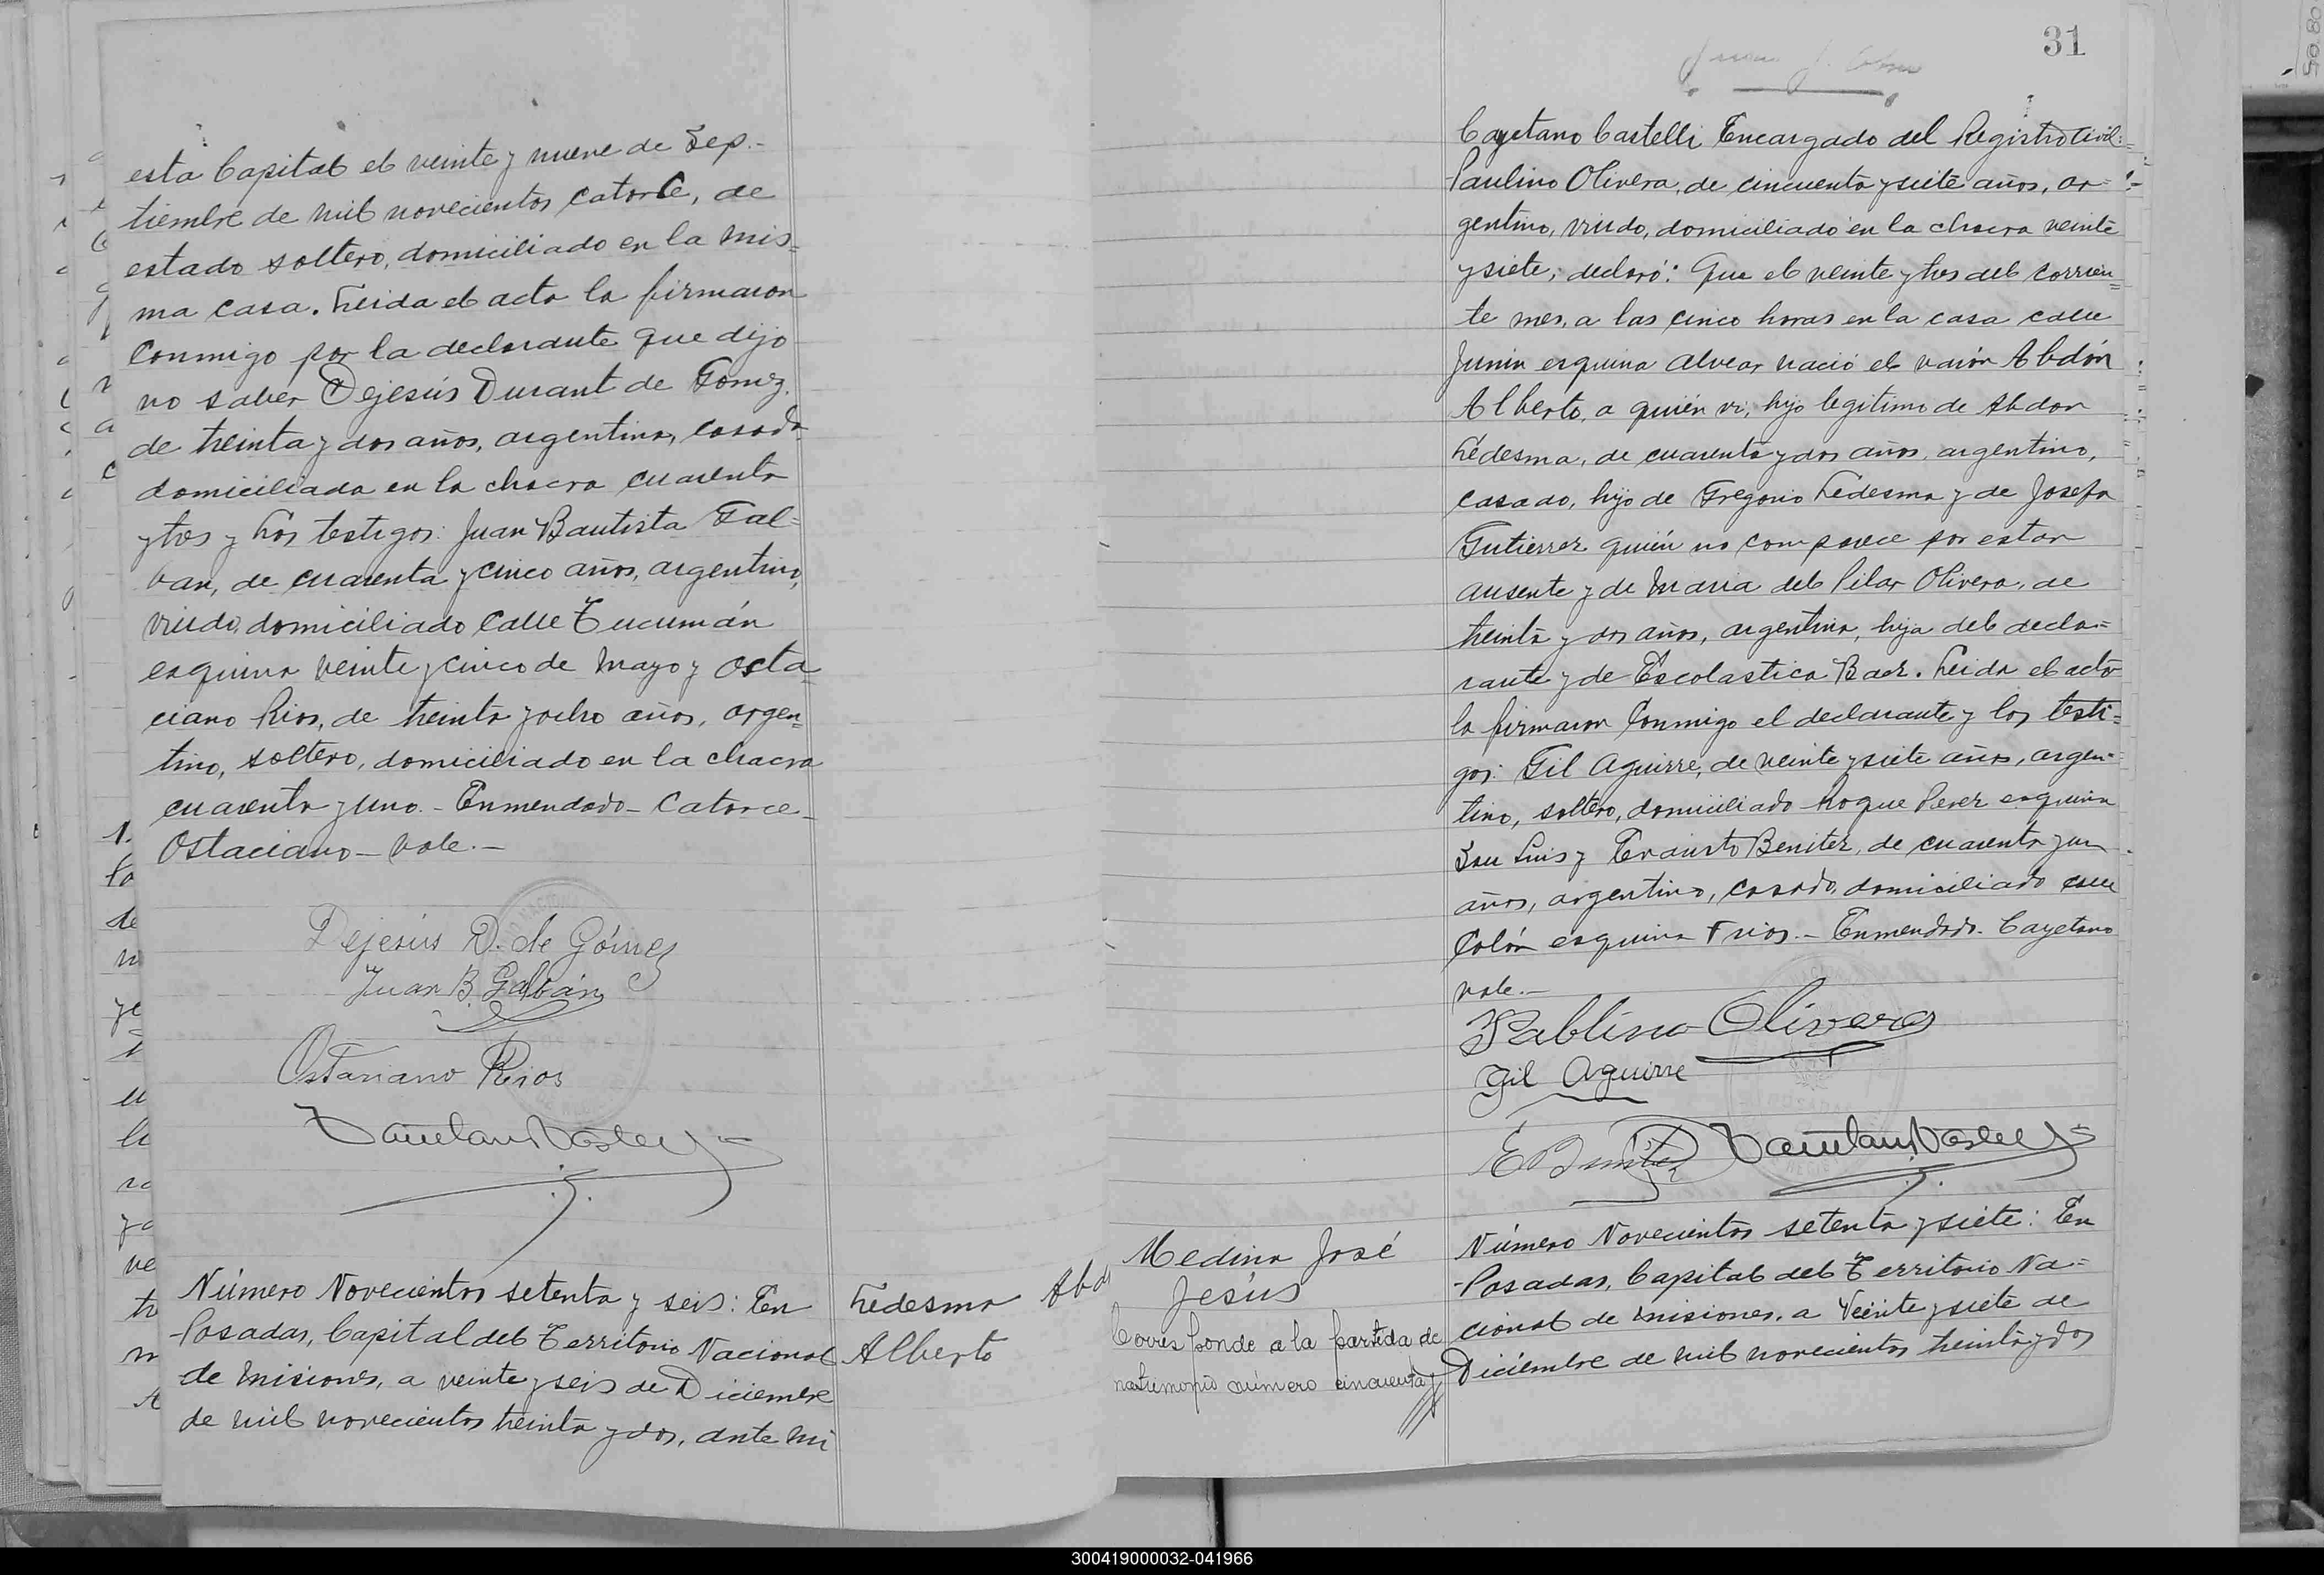 esta Capital el veinte y nueve de Sep.-
tiembre de mil novecientos catorce, de
estado soltero, domiciliado en la mis=
ma casa. Leida el acta la firmaron
conmigo por la declarante que dijo
no saber Dejesús Durant de Gomez,
de treinta y dos años, argentina, casada
domiciliada en la chacra cuarenta
y tres y los testigos: Juan Bautista Gal=
van, de cuarenta y cinco años, argentino,
viudo, domiciliado calle Tucumán
esquina veinte y cinco de Mayo y Osta=
ciano Rios, de treinta y ocho años, argen=
tino, soltero, domiciliado en la chacra
cuarenta y uno.- Enmendado- Catorce-
Ostaciano- vale.-
Dejesús D. de Gómez
Juan B. Galbán
Ostaciano Rios
Número Novecientos setenta y seis: En
Posadas, Capital del Territorio Nacional
de Misiones, a veinte y seis de Diciembre
de mil novecientos treinta y dos, ante mi
Ledesma Abd
Alberto
31
Cayetano Castelli Encargado del Registro Civil:
Paulino Olivera, de cincuenta y siete años, ar=
gentino, viudo, domiciliado en la chacra veinte
y siete; declaró: Que el veinte y tres del corrien=
te mes, a las cinco horas en la casa calle
Junin esquina Alvear nació el varón Abdón
Alberto, a quién vi, hijo legitimo de Abdon
Ledesma, de cuarenta y dos años, argentino,
casado, hijo de Gregorio Ledesma y de Josefa
Gutierrez quién no comparece por estar
ausente y de Maria del Pilar Olivera, de
treinta y dos años, argentina, hija del decla=
rante y de Escolastica Baez. Leida el acta
la firmaron conmigo el declarante y los testi=
gos: Gil Aguirre, de veinte y siete años, argen=
tino, soltero, domiciliado Roque Perez esquina
San Luis y Evaristo Benitez, de cuarenta y un
años, argentino, casado, domiciliado calle
Colón esquina Frios.- Enmendado. Cayetano
vale.-
Pablino Olivera
Gil Aguirre
E Benitez
Medina José
Jesús
Corresponde a la partida de
matrimonio número cincuenta y
Número Novecientos setenta y siete: En
Posadas, Capital del Territorio Na=
cional de Misiones, a veinte y siete de
Diciembre de mil novecientos treinta y dos
300419000032-041966